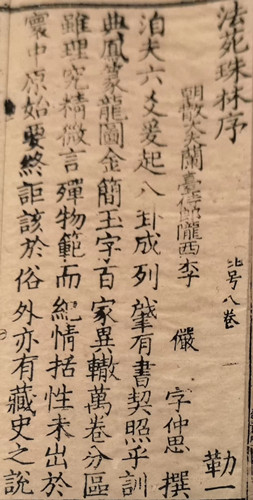 法苑珠林序 勒一
北号八卷 一
朝散大夫蘭臺侍郎隴西李 儼 字仲思 撰
洎夫六爻爰起八卦成列肇有書契照乎訓
典鳳篆龍圖金簡玉字百家異轍萬卷分區
雖理究精微言殫物範而紀情括性未出於
寰中原始要終詎該於俗外亦有藏史之說